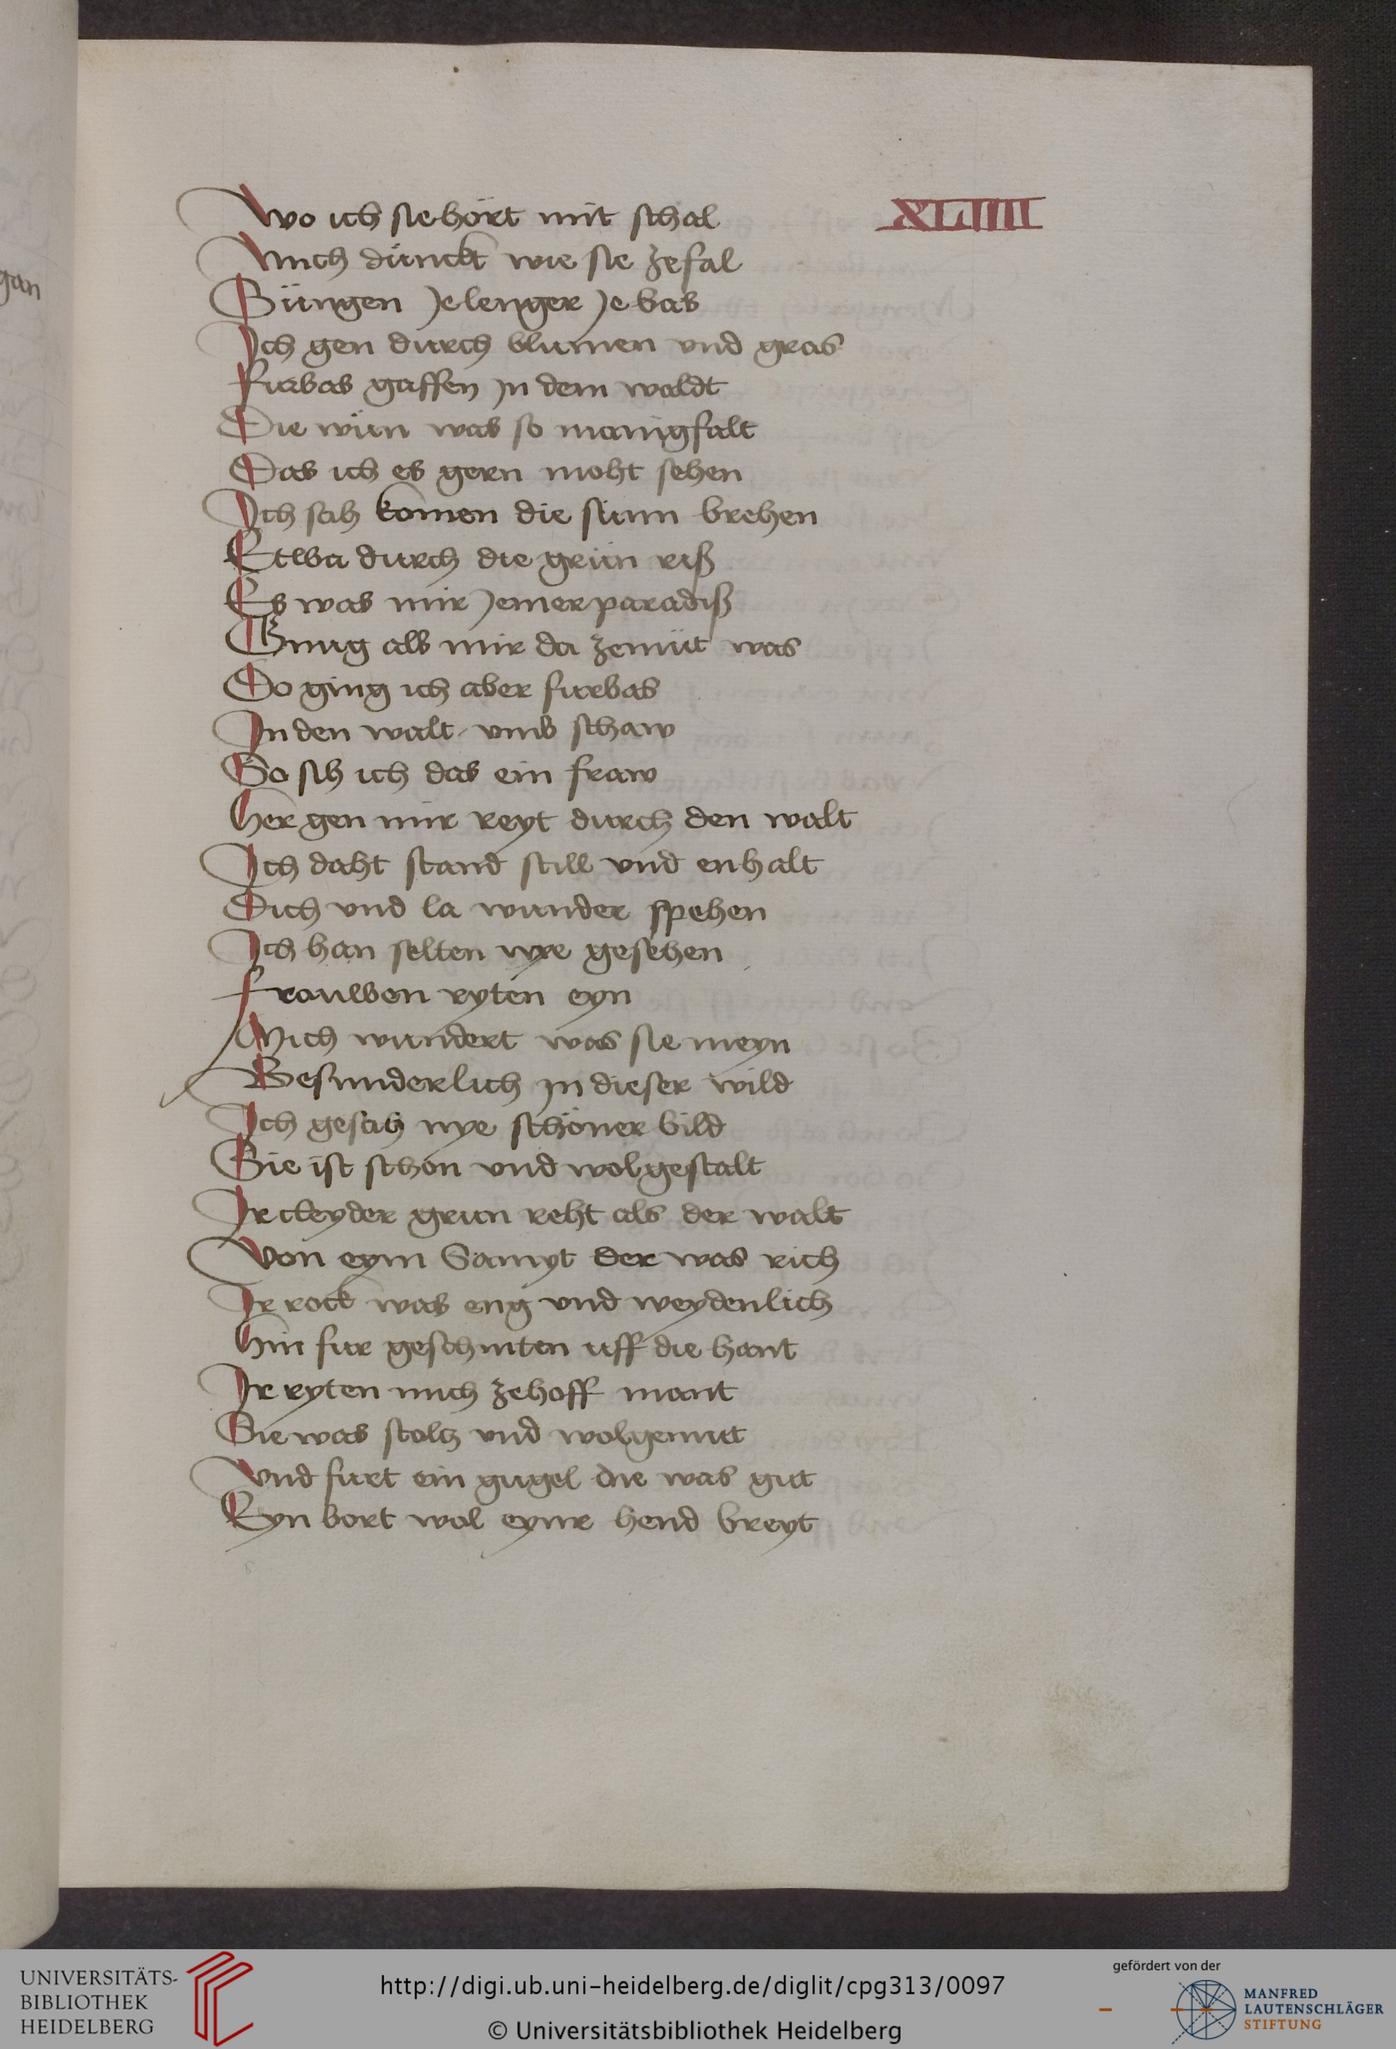 XLIIII
Wo ich sie hört mit schal
Mich dünckt wie sie zefal
Süngen ye lenger ye bas
Ich gen durch blumen vnd gras
Furbas gaffen jn dem waldt
Die wün was so manigfalt
Das ich es gern moht sehen
Ich sah komen die sunn brehen
Etwa durch die grün riß
Es was mir yemer paradiß
Gnug als mir da zemüt was
Do ging ich aber furbas
In den walt vmb schaw
So sih ich das ein fraw
Her gen mir reyt durch den walt
Ich daht stand still vnd enhalt
Dich vnd la wunder spehen
Ich han selten wye gesehen
Frauwen ryten eyn
Mich wundert was sie meyn
Besunderlich jn dieser wild
Ich gesah nye schöner bild
Sie ist schon vnd wolgestalt
Ir cleyder grun reht als der walt
Von eym Samyt der was rich
Ir rock was eng vnd weydenlich
Hin fur geschniten uff die hant
Ir ryten mich zehoff mant
Sie was stoltz vnd wolgemut
Vnd furt ein gugel die was gut
Eyn bort wol eynr hend breyt
gan
UNIVERSITÄTS-
BIBLIOTHEK
HEIDELBERG
http://digi.ub.uni-heidelberg.de/diglit/cpg313/0097
© Universitätsbibliothek Heidelberg
gefördert von der
MANFRED
LAUTENSCHLÄGER
STIFTUNG